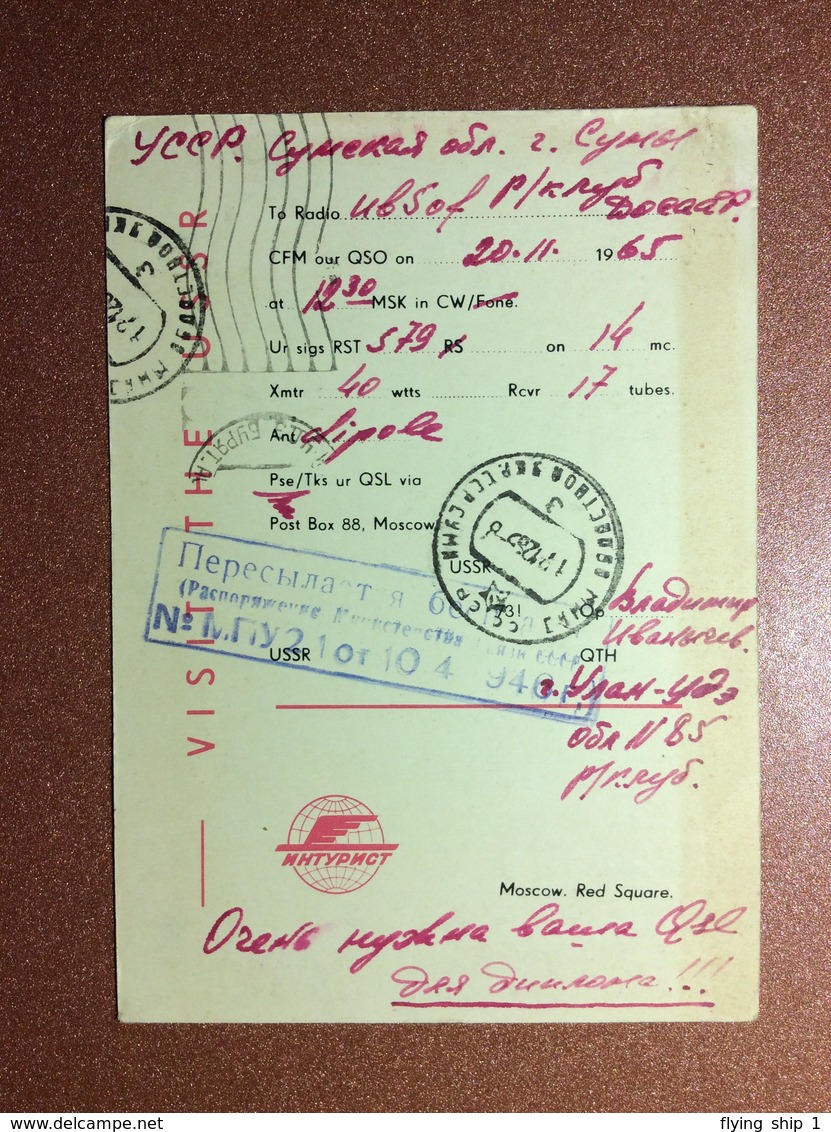 УССР. Сумская обл. г. Сумы
To Radio UB5of Р/клуб
ДОСААФ.
CFM our QSO on 20.11. 1965
at 12 30 MSK in CW/Fone.
Ur sigs RST 579 RS on 14 mc.
Xmtr 40 wtts Rcvr 17 tubes.
Ant dipole
Pse/Tks ur QSL via
Post Box 88, Moscow
USSR
73! Op Владимир
Иваньичев.
USSR QTH
г. Улан-Удэ
обл N 85
р/клуб.
VISIT THE USSR
Пересылается
(Распоряжение Министерства Связи СССР
№ МПУ 21 от 10 4
ИНТУРИСТ
Moscow. Red Square.
Очень нужна ваша Qsl
для диплома!!!
flying ship 1